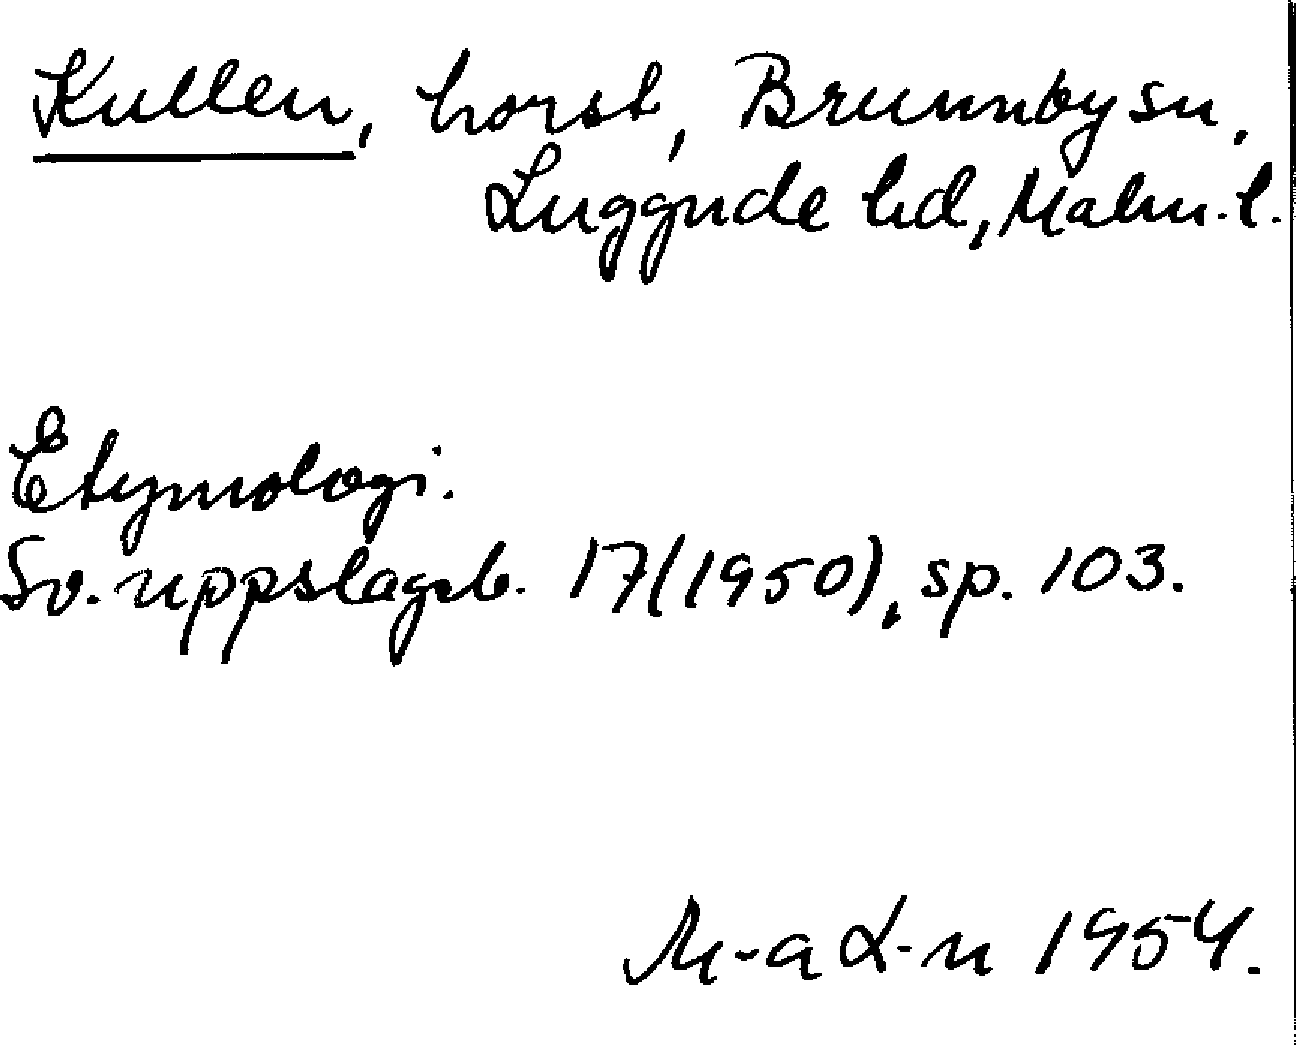 Kullen, horst, Brunnby sn,
Luggude hd, Malm. l.
Etymologi.
Sv. uppslagsb. 17(1950), sp. 103.
M-a L-n 1954.